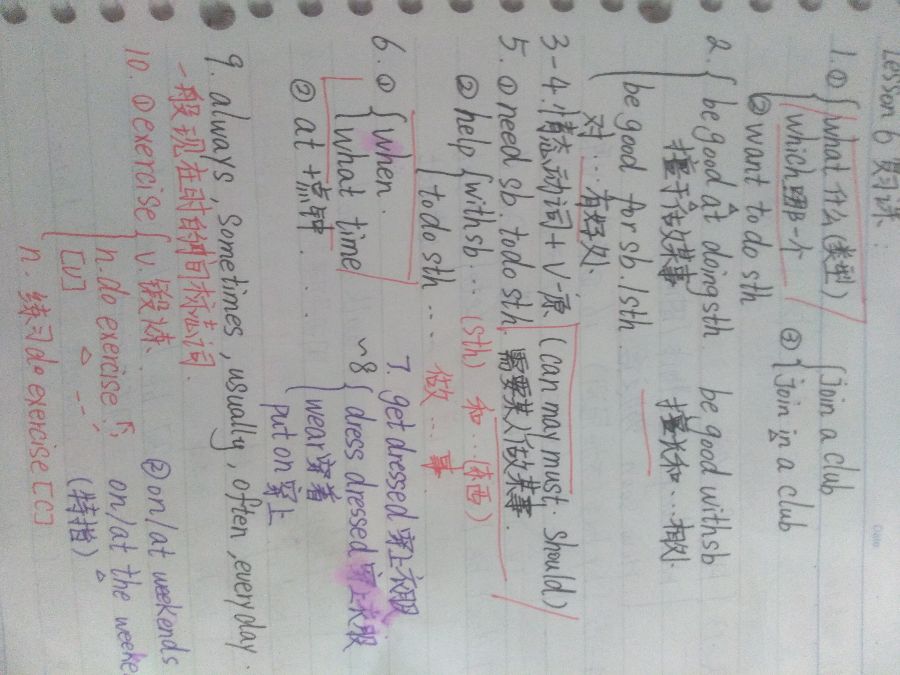 Lesson 6 复习课：
1.① { what 什么(类型)
which 哪一个
② want to do sth
③ { join a club
join in a club
2. { be good at doing sth
擅于做某事
be good with sb
擅长和...相处
be good for sb./sth
对...有好处.
3-4.情态动词+V-原 (can may must should)
5.①need sb. to do sth. 需要某人做某事.
②help { with sb... (sth) 和...(东西)
to do sth... 做...事
6.① { when.
what time
② at +点钟..
7. get dressed 穿上衣服
~8 { dress dressed 穿上衣服
wear 穿着
put on 穿上
9. always, sometimes, usually, often, everyday.
一般现在时的时间标志词.
10. ①exercise { v. 锻炼.
n. do exercise
[U]
n. 练习 do exercise [C]
②on/at weekends
on/at the
(特指)